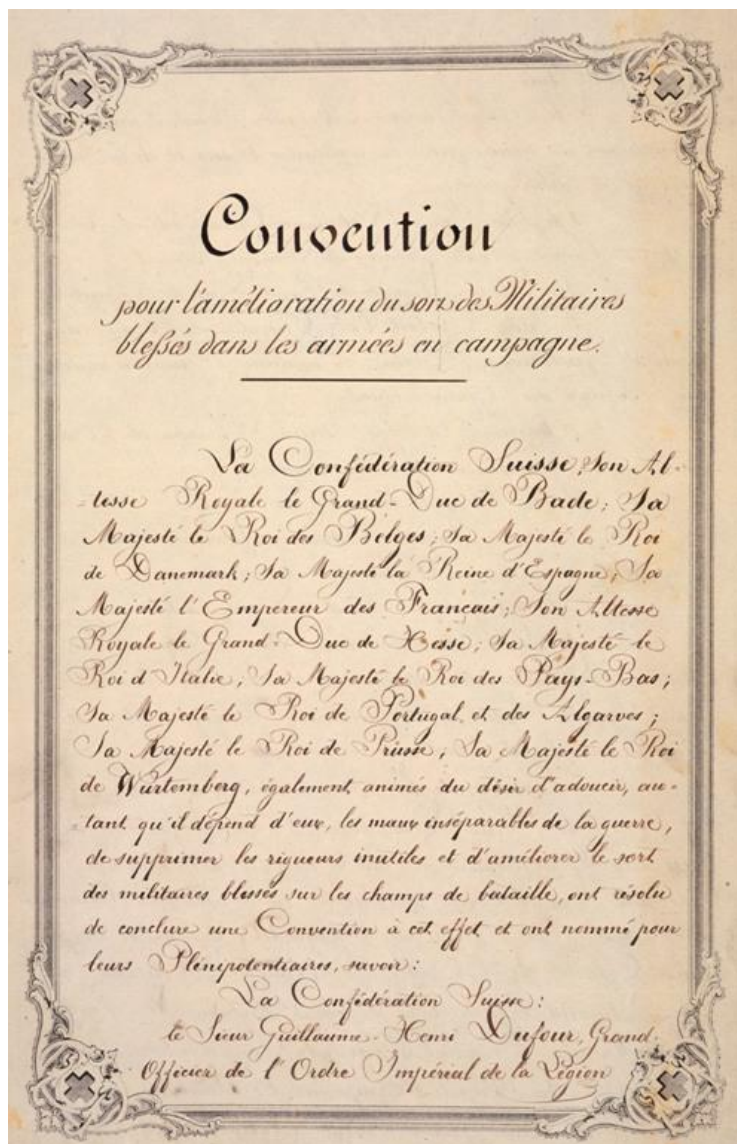 Convention
pour l'amélioration du sort des Militaires
blessés dans les armées en campagne.
La Confédération Suisse, Son Al-
tesse Royale le Grand-Duc de Bade; Sa
Majesté le Roi des Belges; Sa Majesté le Roi
de Danemark; Sa Majesté la Reine d'Espagne; Sa
Majesté l'Empereur des Français; Son Altesse
Royale le Grand-Duc de Hesse; Sa Majesté le
Roi d'Italie; Sa Majesté le Roi des Pays-Bas;
Sa Majesté le Roi de Portugal et des Algarves;
Sa Majesté le Roi de Prusse, Sa Majesté le Roi
de Würtemberg, également animés du désir d'adoucir, au-
tant qu'il dépend d'eux, les maux inséparables de la guerre,
de supprimer les rigueurs inutiles et d'améliorer le sort
des militaires blessés sur les champs de bataille, ont résolu
de conclure une Convention à cet effet et ont nommé pour
leurs Plénipotentiaires, savoir:
La Confédération Suisse:
le Sieur Guillaume-Henri Dufour, Grand
Officier de l'Ordre Impérial de la Légion